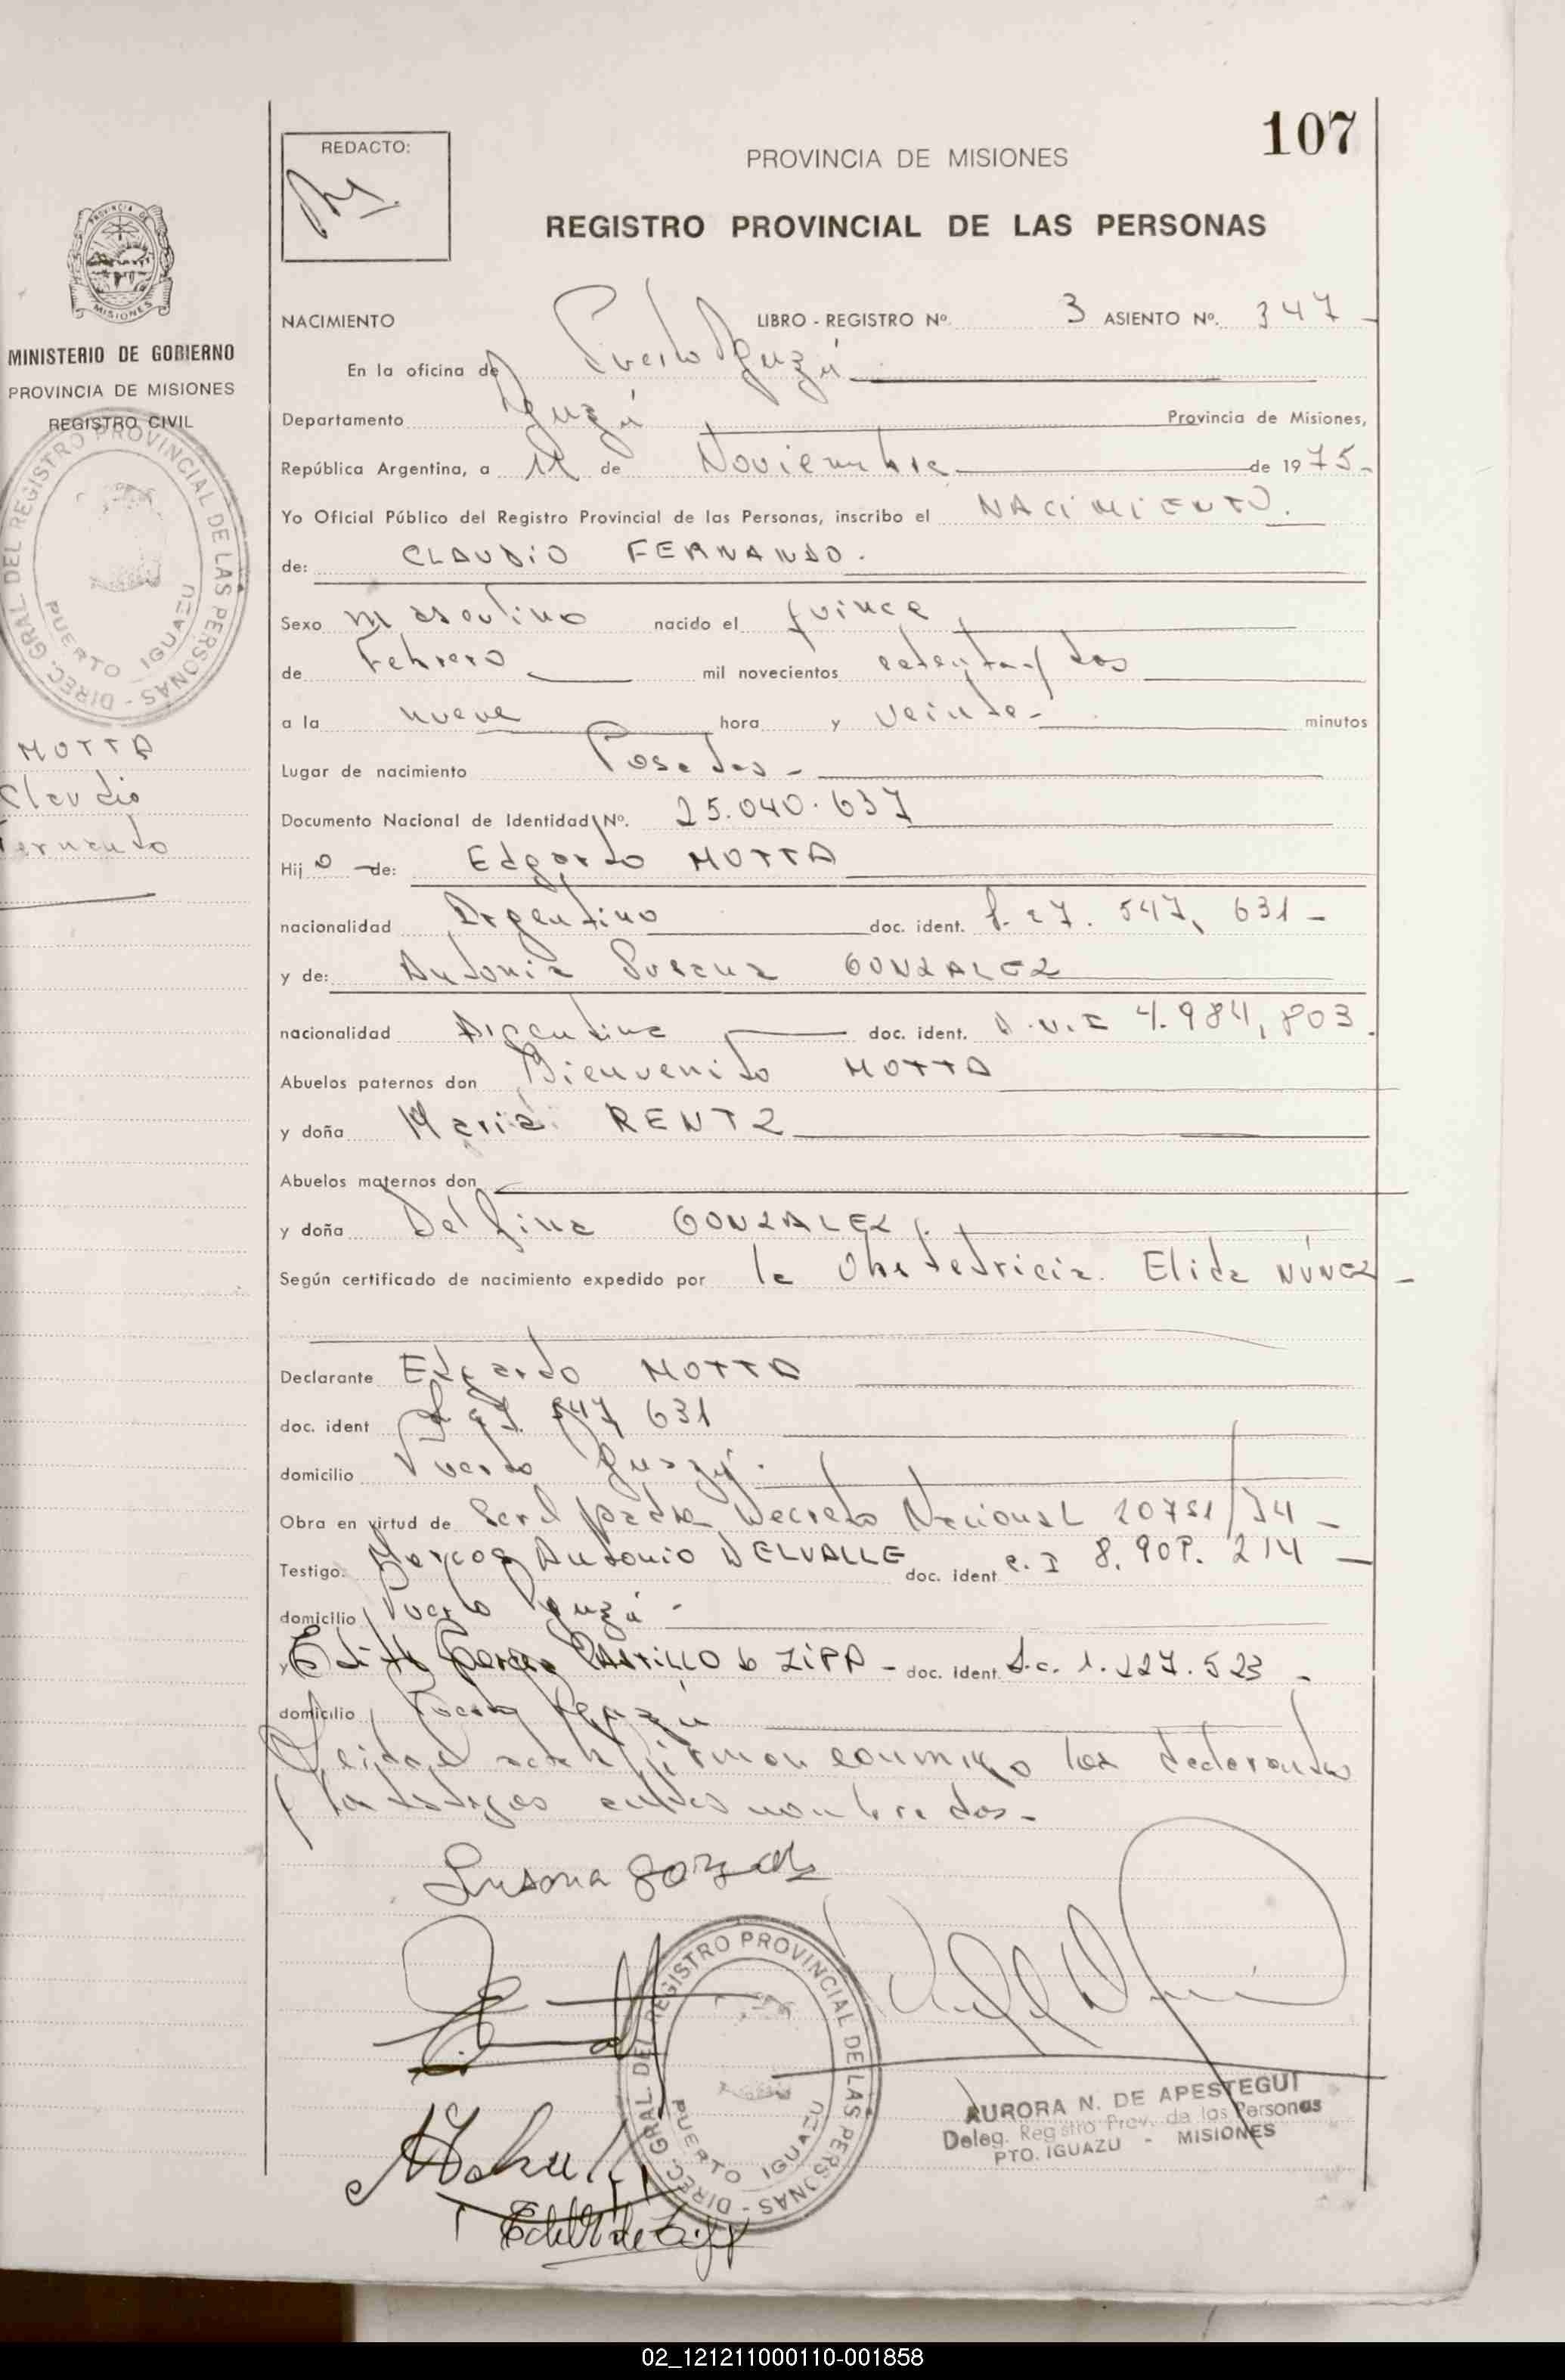 107
REDACTO:
PROVINCIA DE MISIONES
REGISTRO PROVINCIAL DE LAS PERSONAS
MISIONES
MINISTERIO DE GOBIERNO
PROVINCIA DE MISIONES
REGISTRO CIVIL
DIREC. GRAL DEL REGISTRO PROVINCIAL DE LAS PERSONAS -
PUERTO IGUAZU
MOTTA
Claudio
Fernando
NACIMIENTO LIBRO - REGISTRO Nº. 3 ASIENTO Nº. 347 -
En la oficina de Puerto Iguazú
Departamento Iguazú Provincia de Misiones,
República Argentina, a 11 de Noviembre de 1975.-
Yo Oficial Público del Registro Provincial de las Personas, inscribo el NACIMIENTO.
de: CLAUDIO FERNANDO.
Sexo masculino nacido el quince
de Febrero mil novecientos setenta y dos
a la nueve hora y veinte - minutos
Lugar de nacimiento Posadas -
Documento Nacional de Identidad Nº. 25.040.637
Hijo de: Edgardo MOTTA
nacionalidad Argentino doc. ident. 547, 631 -
y de: Antonia Susana GONZALEZ
nacionalidad Argentina doc. ident. D.N.I 4.984,803.
Abuelos paternos don Bienvenido MOTTA
y doña María RENTZ
Abuelos maternos don
y doña Delfina GONZALEZ.
Según certificado de nacimiento expedido por la Obstetricia. Elida NÚÑEZ -
Declarante Edgardo MOTTA
doc. ident 547, 631
domicilio Puerto Iguazú.
Obra en virtud de ser el padre Decreto Nacional /74 -
Testigo: Marcos Antonio DELVALLE doc. ident C.I 8.908.214 -
domicilio Puerto Iguazú -
y Edith CASTILLO de ZIPP - doc. ident. L.c. 1.227.523 -
domicilio Puerto Iguazú
Leida el acta firman conmigo los declarantes
y los testigos antes nombrados.-
Susana Gonzalez
DIREC. GRAL DEL REGISTRO PROVINCIAL DE LAS PERSONAS -
PUERTO IGUAZU
AURORA N. DE APESTEGUI
Deleg. Registro Prov. de las Personas
PTO. IGUAZU - MISIONES
02_121211000110-001858